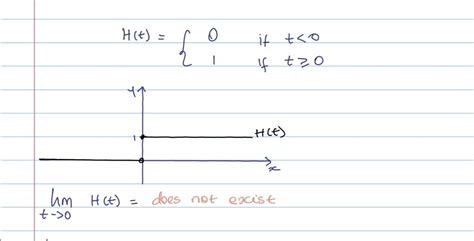 H(t) = { 0 if t<0
1 if t≥0
y
1
H(t)
x
lim H(t) = does not excist
t→0